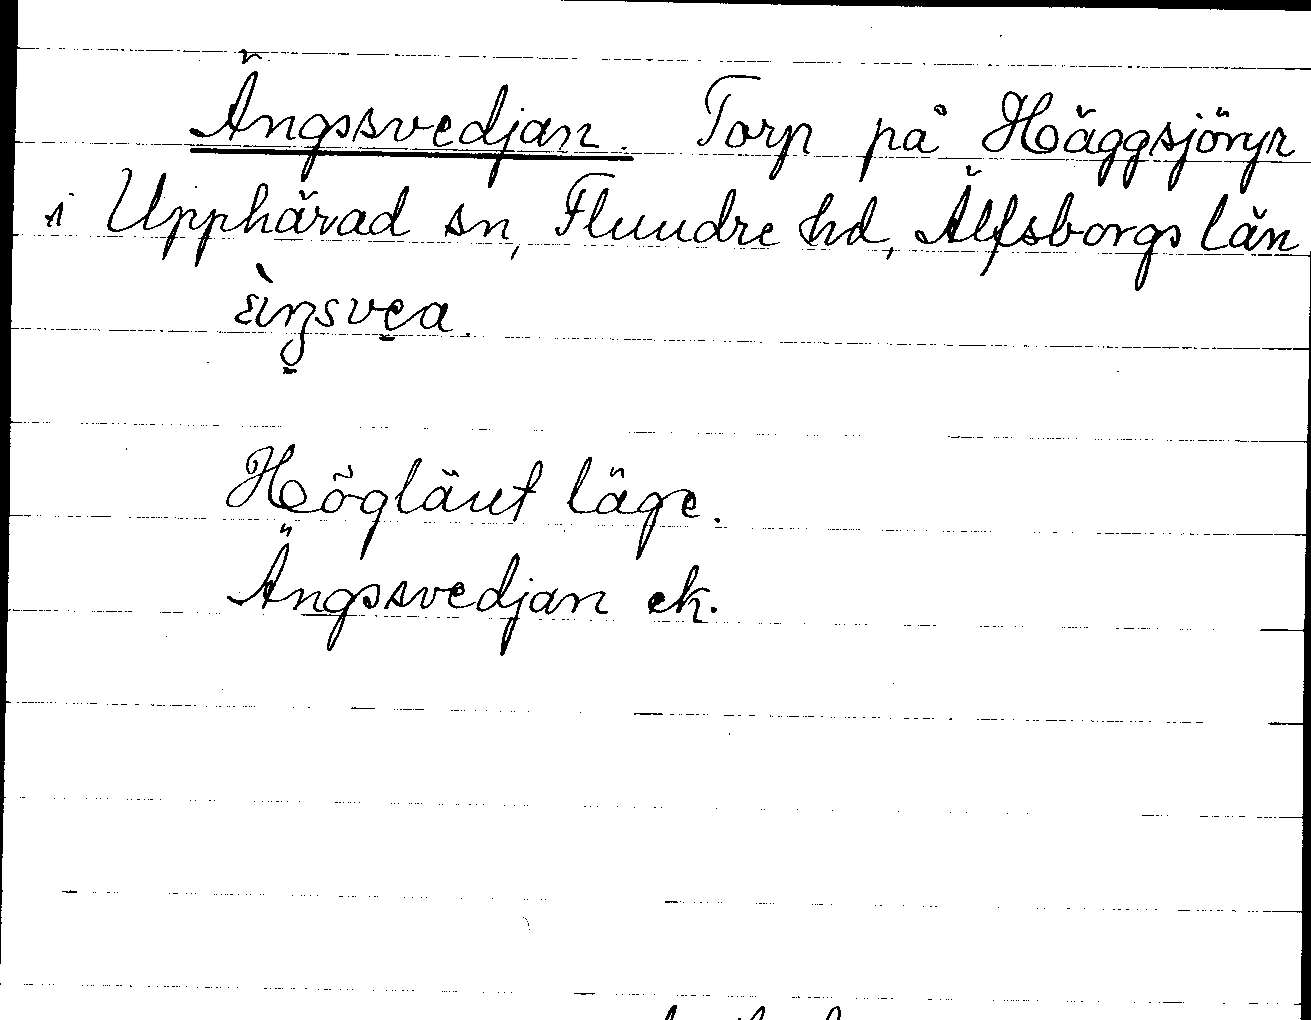 Ängssvedjan. Torp på Häggsjöryr
i Upphärad sn, Flundre hd, Älfsborgs län
Högländt läge.
Ängssvedjan ek.